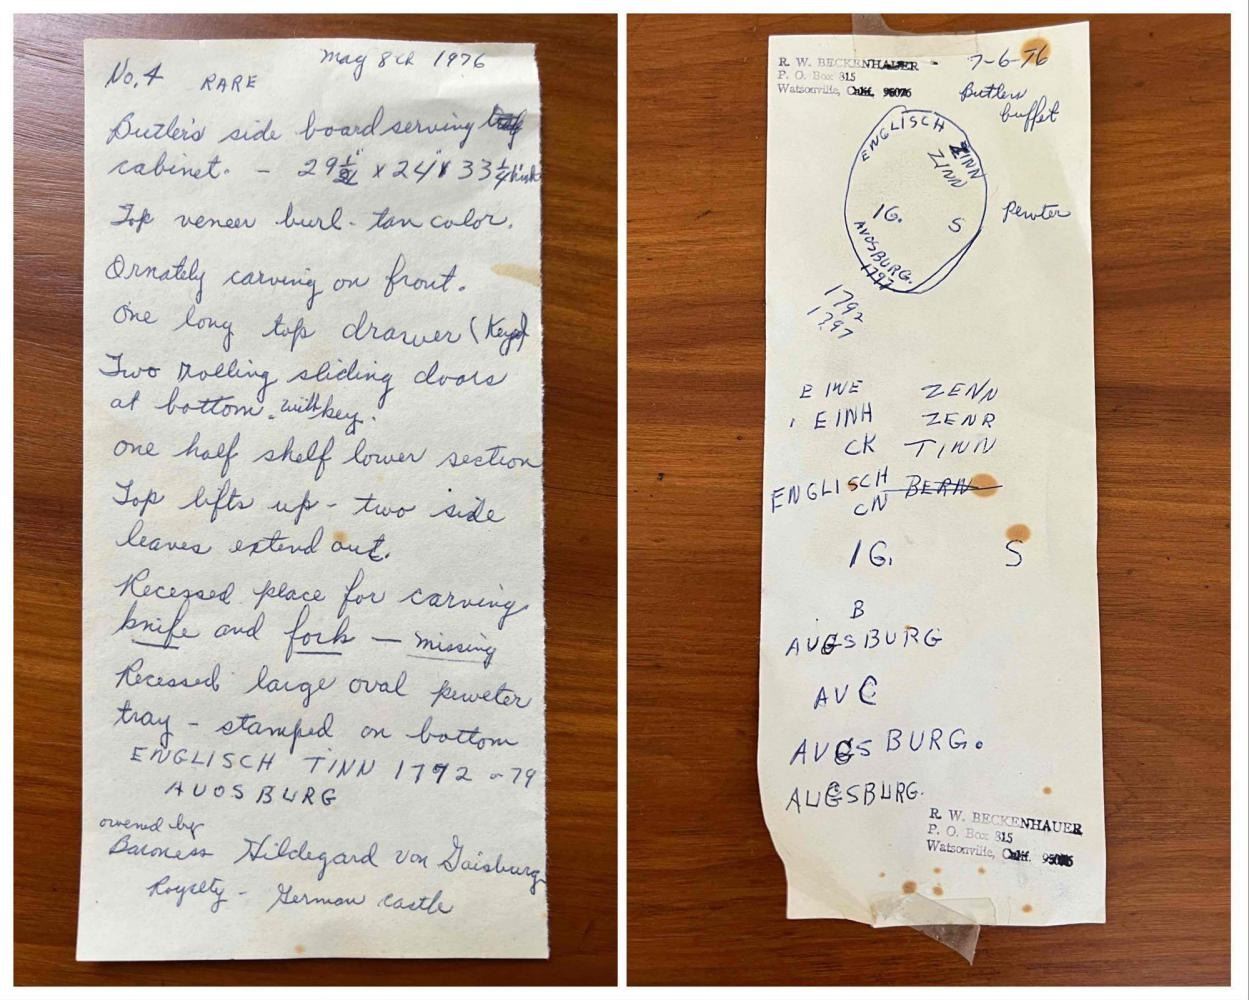 No. 4 RARE May 8th 1976
Butler's side board serving
cabinet. - 29 1/2" x 24" x 33 1/4" high
Top veneer burl - tan color.
Ornately carving on front.
One long top drawer (Keyd)
Two rolling sliding doors
at bottom. with key.
one half shelf lower section
Top lifts up - two side
leaves extend out.
Recessed place for carving
knife and fork - missing
Recessed large oval peweter
tray - stamped on bottom
ENGLISCH TINN 1792 - 79
AUOSBURG
owened by
Baroness Hildegard von Gaisburg
Royselty - German castle
R. W. BECKENHAUER 7-6-76
P. O. Box 315
Watsonville, Calif. 95076
Butlers
buffet
ENGLISCH ZINN
ZINN
IG. S Pewter
AUOSBURG.
1797
1792
1797
EINE ZENN
EINH ZENR
CK TINN
ENGLISCH BERN
CN
IG. S
B
AUGSBURG
AVC
AUGSBURG.
AUGSBURG.
R. W. BECKENHAUER
P. O. Box 315
Watsonville, Calif. 95076